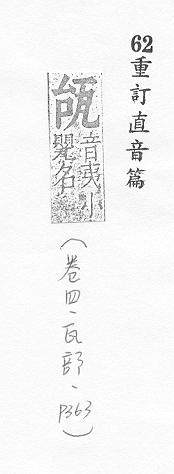 62重訂直音篇
瓵
音夷小
甖名
(卷四、瓦部、P363)